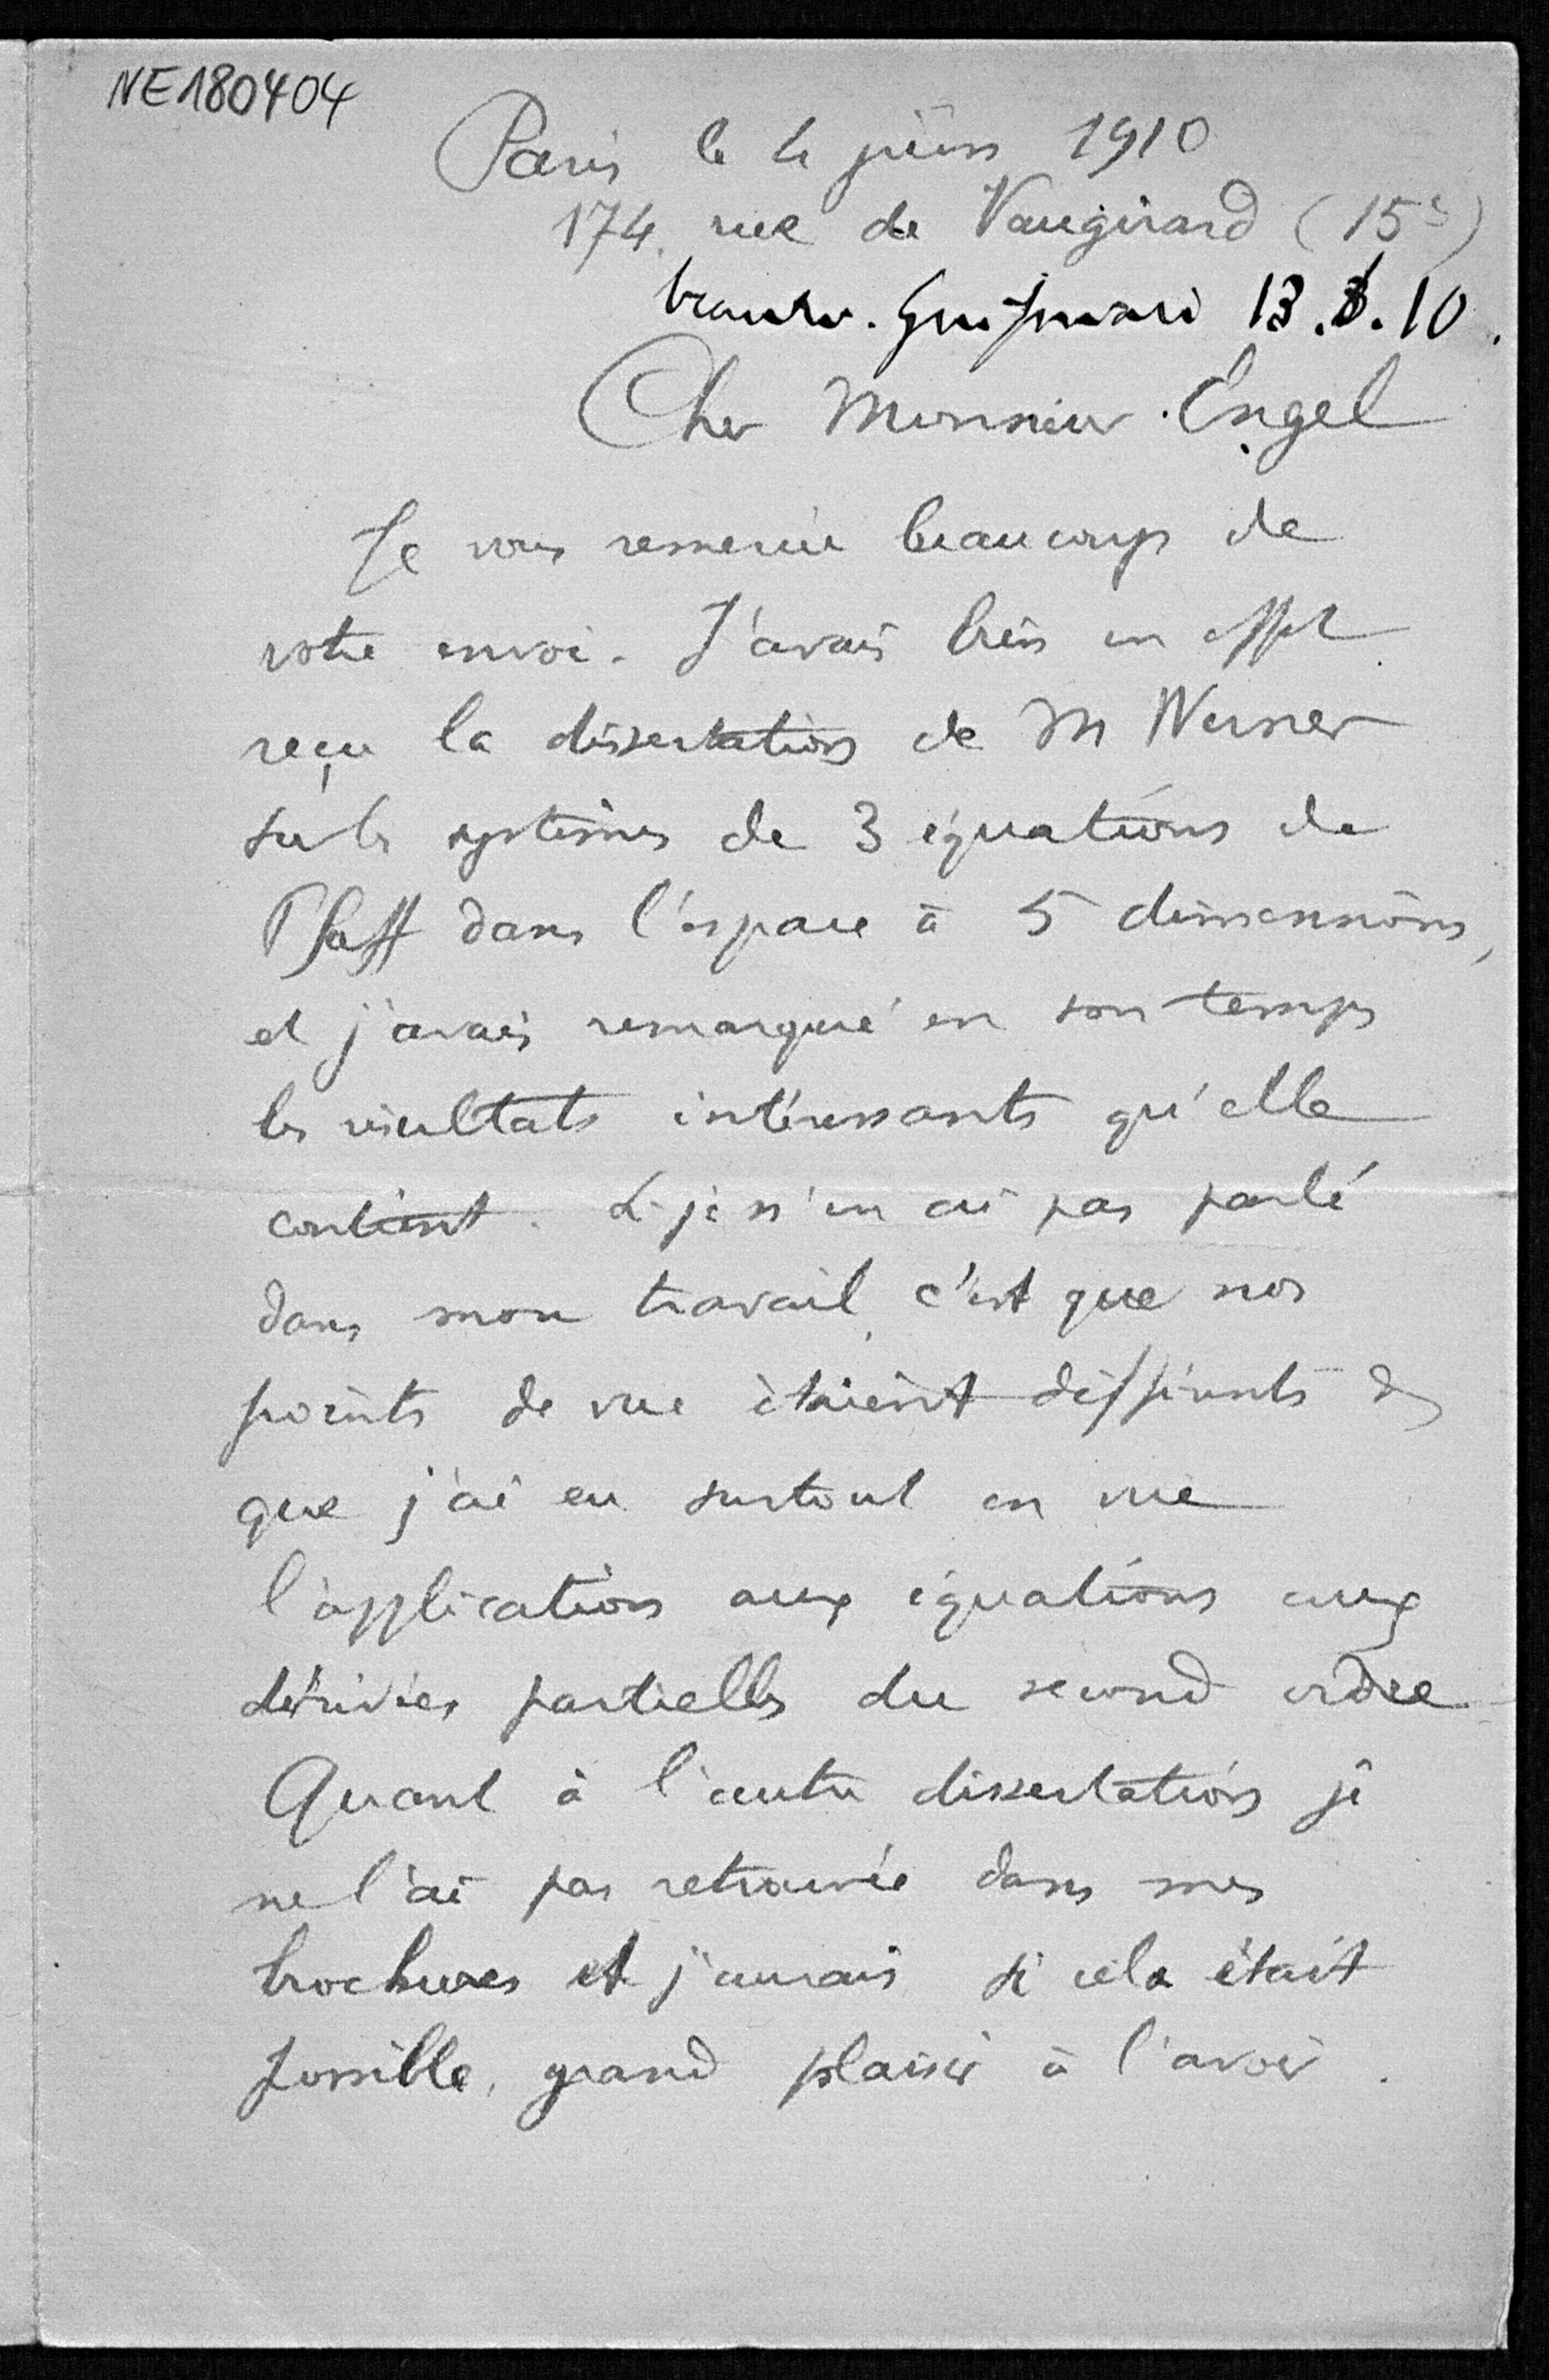 NE180404
Paris le 4 juin 1910
174, rue de Vaugirard (15e)
13.8.10.
Cher Monsieur Engel
Je vous remercie beaucoup de
votre envoi. J'avais bien en effet
reçu la dissertation de M Werner
sur les systèmes de 3 équations de
Pfaff dans l'espace à 5 dimensions,
et j'avais remarqué en son temps
les résultats intéressants qu'elle
contient. Si je n'en ai pas parlé
dans mon travail, c'est que nos
points de vue étaient différents et
que j'ai eu surtout en vue
l'application aux équations aux
dérivées partielles du second ordre
Quant à l'autre dissertation je
ne l'ai pas retrouvée dans mes
brochures et j'aurais si cela était
possible, grand plaisir à l'avoir.